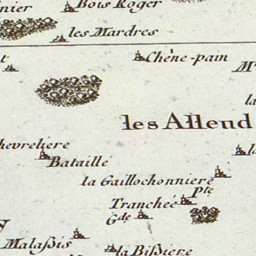 nier
Bois Roger
les Mardres
Chêne-pain
les Assend
hevreliere
Bataille
la Gaillochonniere
Pte
Tranchée
Gde
Malassis
la Bissiere